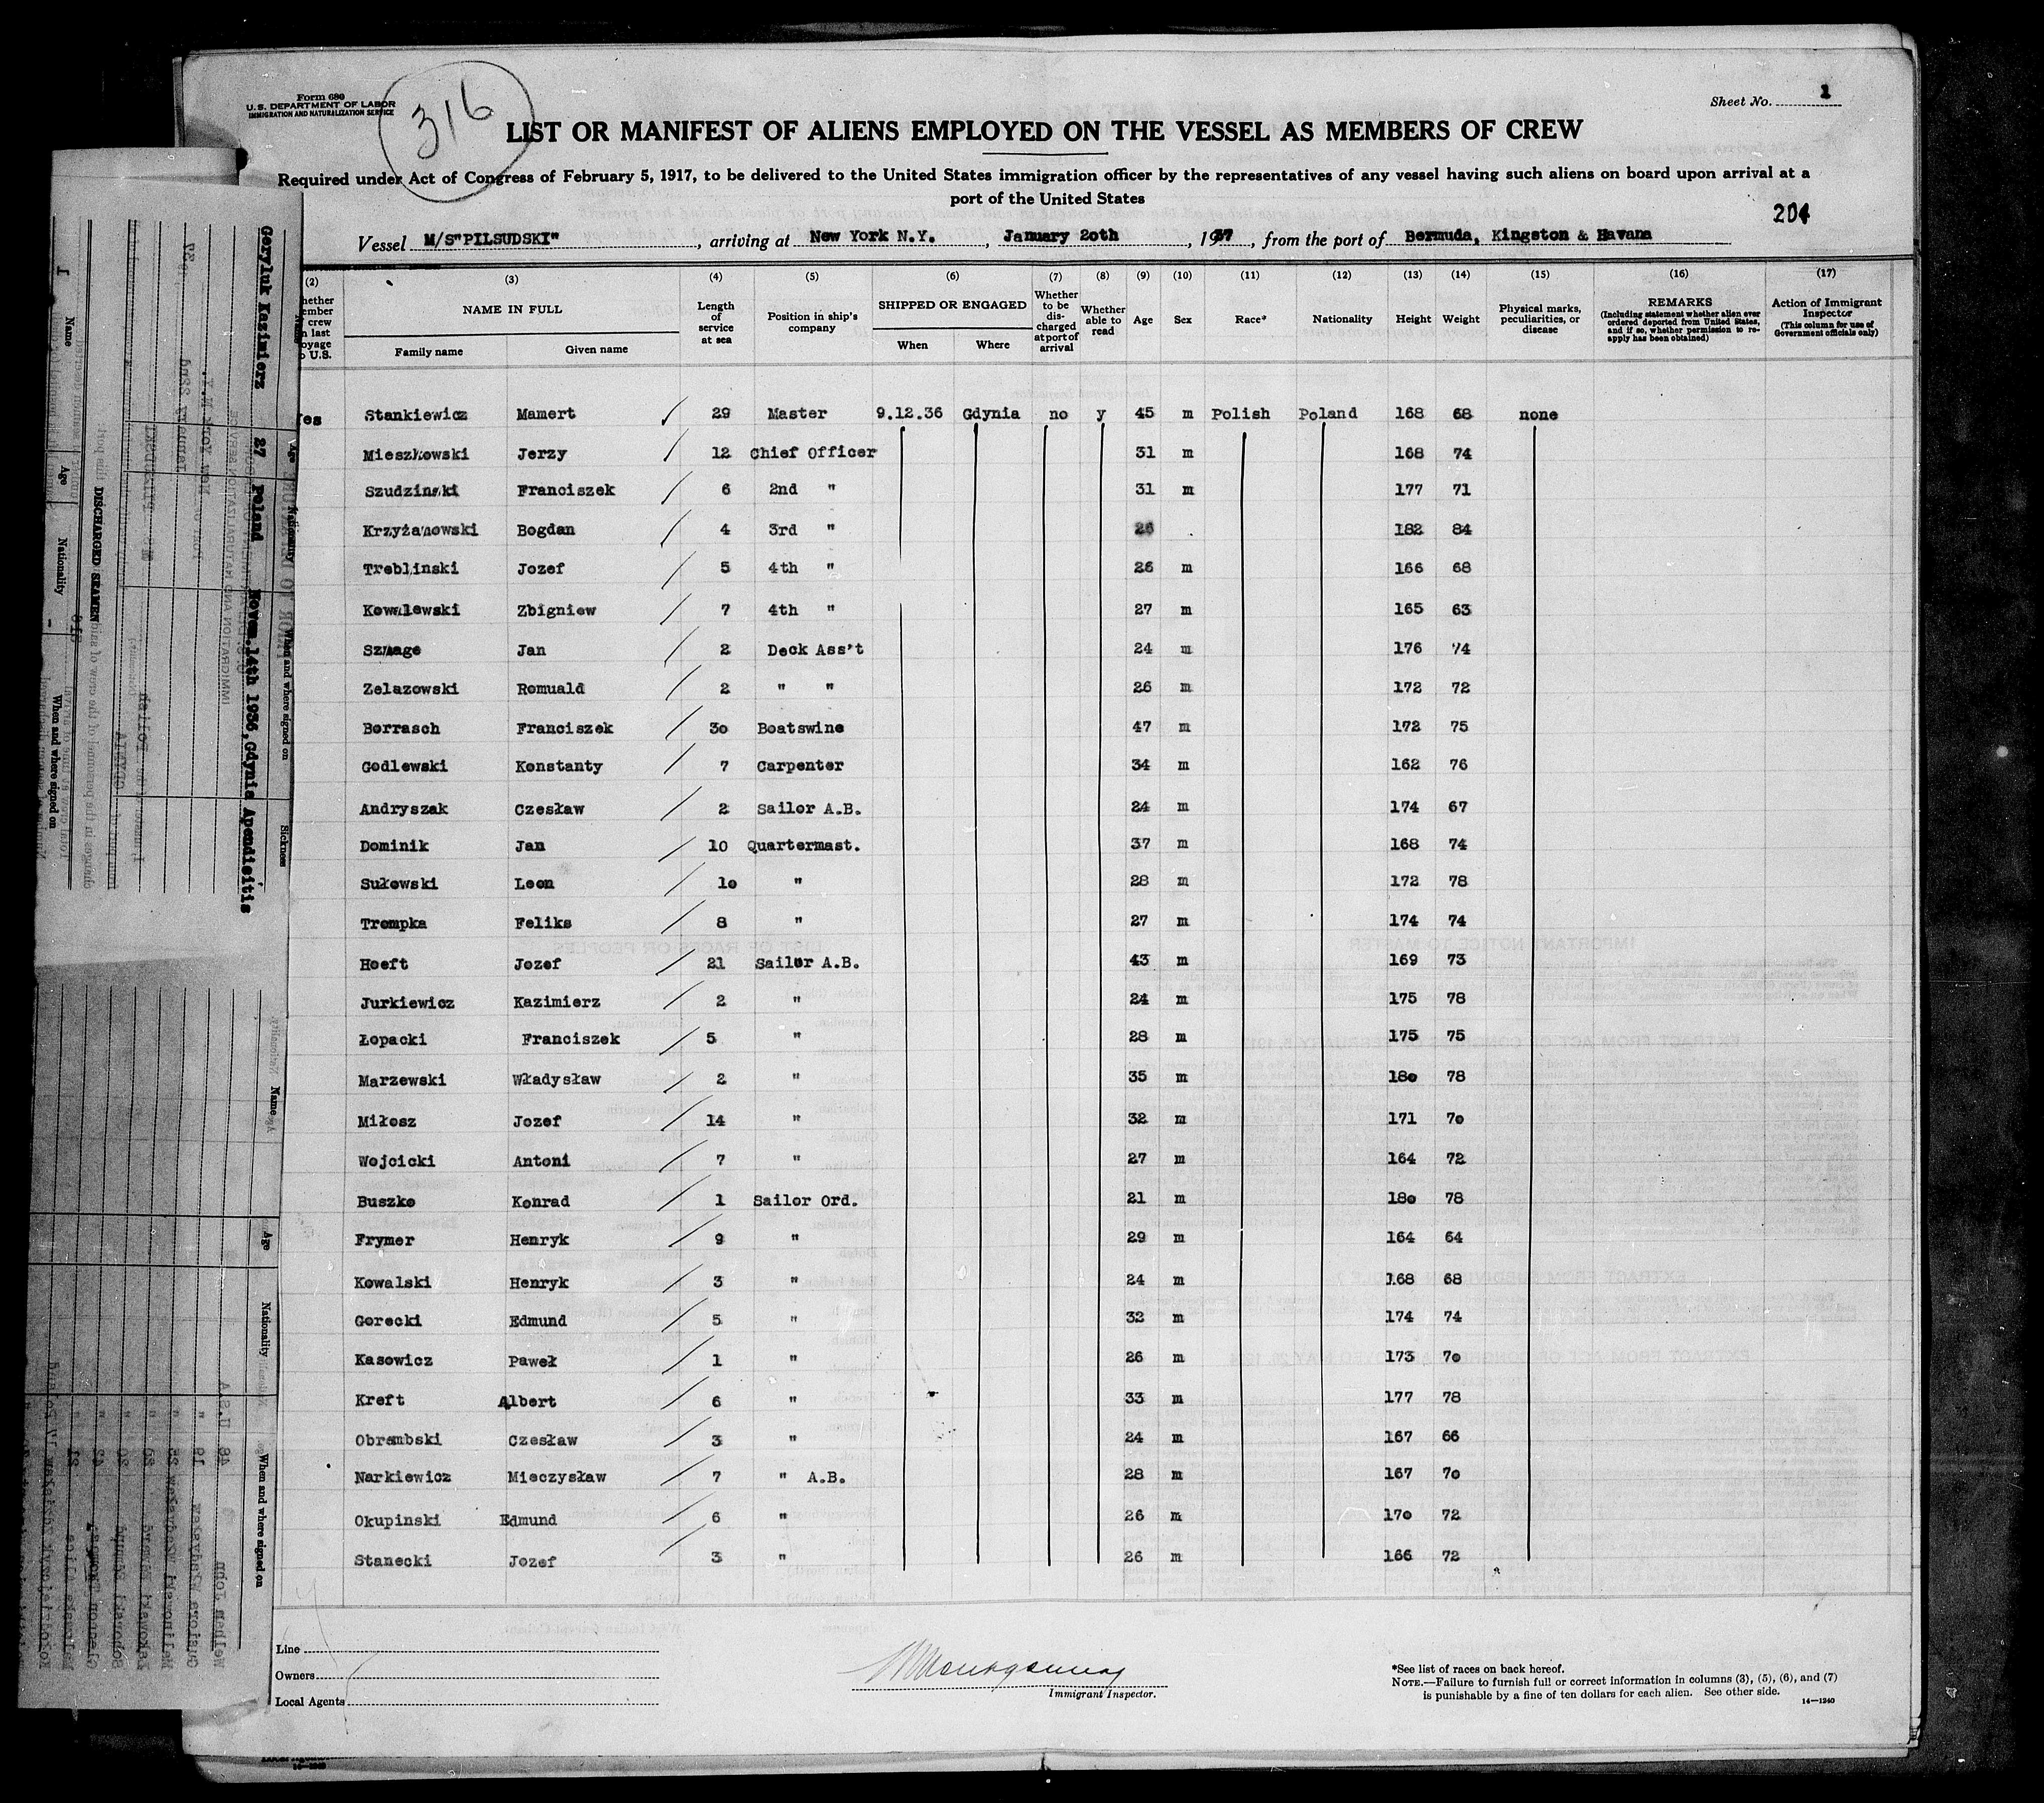 Form 680
U.S. DEPARTMENT OF LABOR
IMMIGRATION AND NATURALIZATION SERVICE
316
Sheet No. 1
LIST OR MANIFEST OF ALIENS EMPLOYED ON THE VESSEL AS MEMBERS OF CREW
Required under Act of Congress of February 5, 1917, to be delivered to the United States immigration officer by the representatives of any vessel having such aliens on board upon arrival at a
port of the United States
204
Vessel M/S"PILSUDSKI", arriving at New York N.Y., January 2oth, 1937, from the port of Bermuda, Kingston & Havana
(2) (3) (4) (5) (6) (7) (8) (9) (10) (11) (12) (13) (14) (15) (16) (17)
NAME IN FULL
Family name Given name
Length of service at sea
Position in ship's company
SHIPPED OR ENGAGED
When Where
Whether to be discharged at port of arrival
Whether able to read
Age
Sex
Race*
Nationality
Height
Weight
Physical marks, peculiarities, or disease
REMARKS
(Including statement whether alien ever ordered deported from United States, and if so, whether permission to reapply has been obtained)
Action of Immigrant Inspector
(This column for use of Government officials only)
Yes Stankiewicz Mamert 29 Master 9.12.36 Gdynia no y 45 m Polish Poland 168 68 none
Mieszkowski Jerzy 12 Chief Officer 31 m 168 74
Szudzinski Franciszek 6 2nd " 31 m 177 71
Krzyżanowski Bogdan 4 3rd " 26 182 84
Treblinski Jozef 5 4th " 26 m 166 68
Kowalewski Zbigniew 7 4th " 27 m 165 63
Jan 2 Deck Ass't 24 m 176 74
Zelazowski Romuald 2 " " 26 m 172 72
Borrasch Franciszek 3o Boatswine 47 m 172 75
Godlewski Konstanty 7 Carpenter 34 m 162 76
Andryszak Czesław 2 Sailor A.B. 24 m 174 67
Dominik Jan 1o Quartermast. 37 m 168 74
Sułowski Leon 1o " 28 m 172 78
Trompka Feliks 8 " 27 m 174 74
Hoeft Jozef 21 Sailor A.B. 43 m 169 73
Jurkiewicz Kazimierz 2 " 24 m 175 78
Łopacki Franciszek 5 " 28 m 175 75
Marzewski Władysław 2 " 35 m 18o 78
Miłosz Jozef 14 " 32 m 171 7o
Wojcicki Antoni 7 " 27 m 164 72
Buszko Konrad 1 Sailor Ord. 21 m 18o 78
Frymer Henryk 9 " 29 m 164 64
Kowalski Henryk 3 " 24 m 168 68
Gorecki Edmund 5 " 32 m 174 74
Kasowicz Paweł 1 " 26 m 173 7o
Kreft Albert 6 " 33 m 177 78
Obrembski Czesław 3 " 24 m 167 66
Narkiewicz Mieczysław 7 " A.B. 28 m 167 7o
Okupinski Edmund 6 " 26 m 17o 72
Stanecki Jozef 3 " 26 m 166 72
Line
Owners
Local Agents
Immigrant Inspector.
*See list of races on back hereof.
NOTE.—Failure to furnish full or correct information in columns (3), (5), (6), and (7)
is punishable by a fine of ten dollars for each alien. See other side.
14—1240
Geryluk Kazimierz 27 Poland Novem. 14th 1936, Gdynia Apendicitis
Name Age Nationality When and where signed on Sickness
DISCHARGED SEAMEN
Name Age Nationality When and where signed on
Name Age Nationality When and where signed on